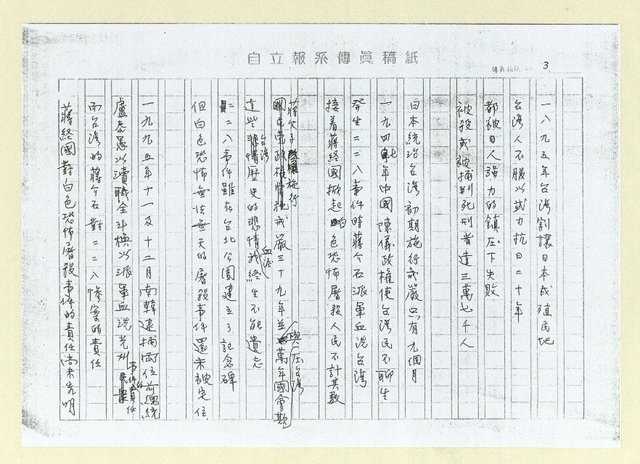 自立報系傳真稿紙
3
一八九五年台灣割讓日本成殖民地
台灣人不服以武力抗日二十年
都被日人強力的鎮压下失敗
被殺或被捕判死刑者達三萬七千人
日本統治台灣初期施行戒嚴只有九個月
一九四七年中國陳儀政權使台灣民不聊生
發生二二八事件時蔣介石派軍血洗台灣
接着蔣経國掀起白色恐怖屠殺人民不計其數
蔣父子施行戒嚴三十九年並萬年國會欺與压台灣
這些台灣悲情歷史的血淚悲情我終生不能遺忘
二二八事件雖在台北公園建立了記念碑
但白色恐怖無法無天的屠殺事件還未被定位
一九九五年十一及十二月南韓逮捕兩位前總統
盧泰愚以瀆職全斗煥以派軍血洗光州事件責任
而台灣的蔣介石對二二八慘案的責任
蔣終國對白色恐怖屠殺事件的責任尚未究明